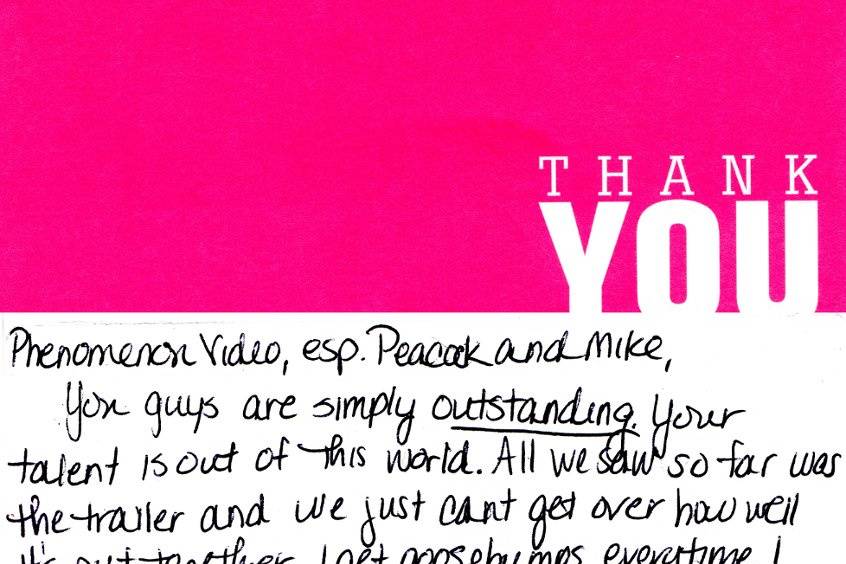 THANK
YOU
Phenomenon Video, esp. Peacock and Mike,
You guys are simply outstanding. Your
talent is out of this world. All we saw so far was
the trailer and we just cant get over how well
it's put together. I get goosebumps everytime I